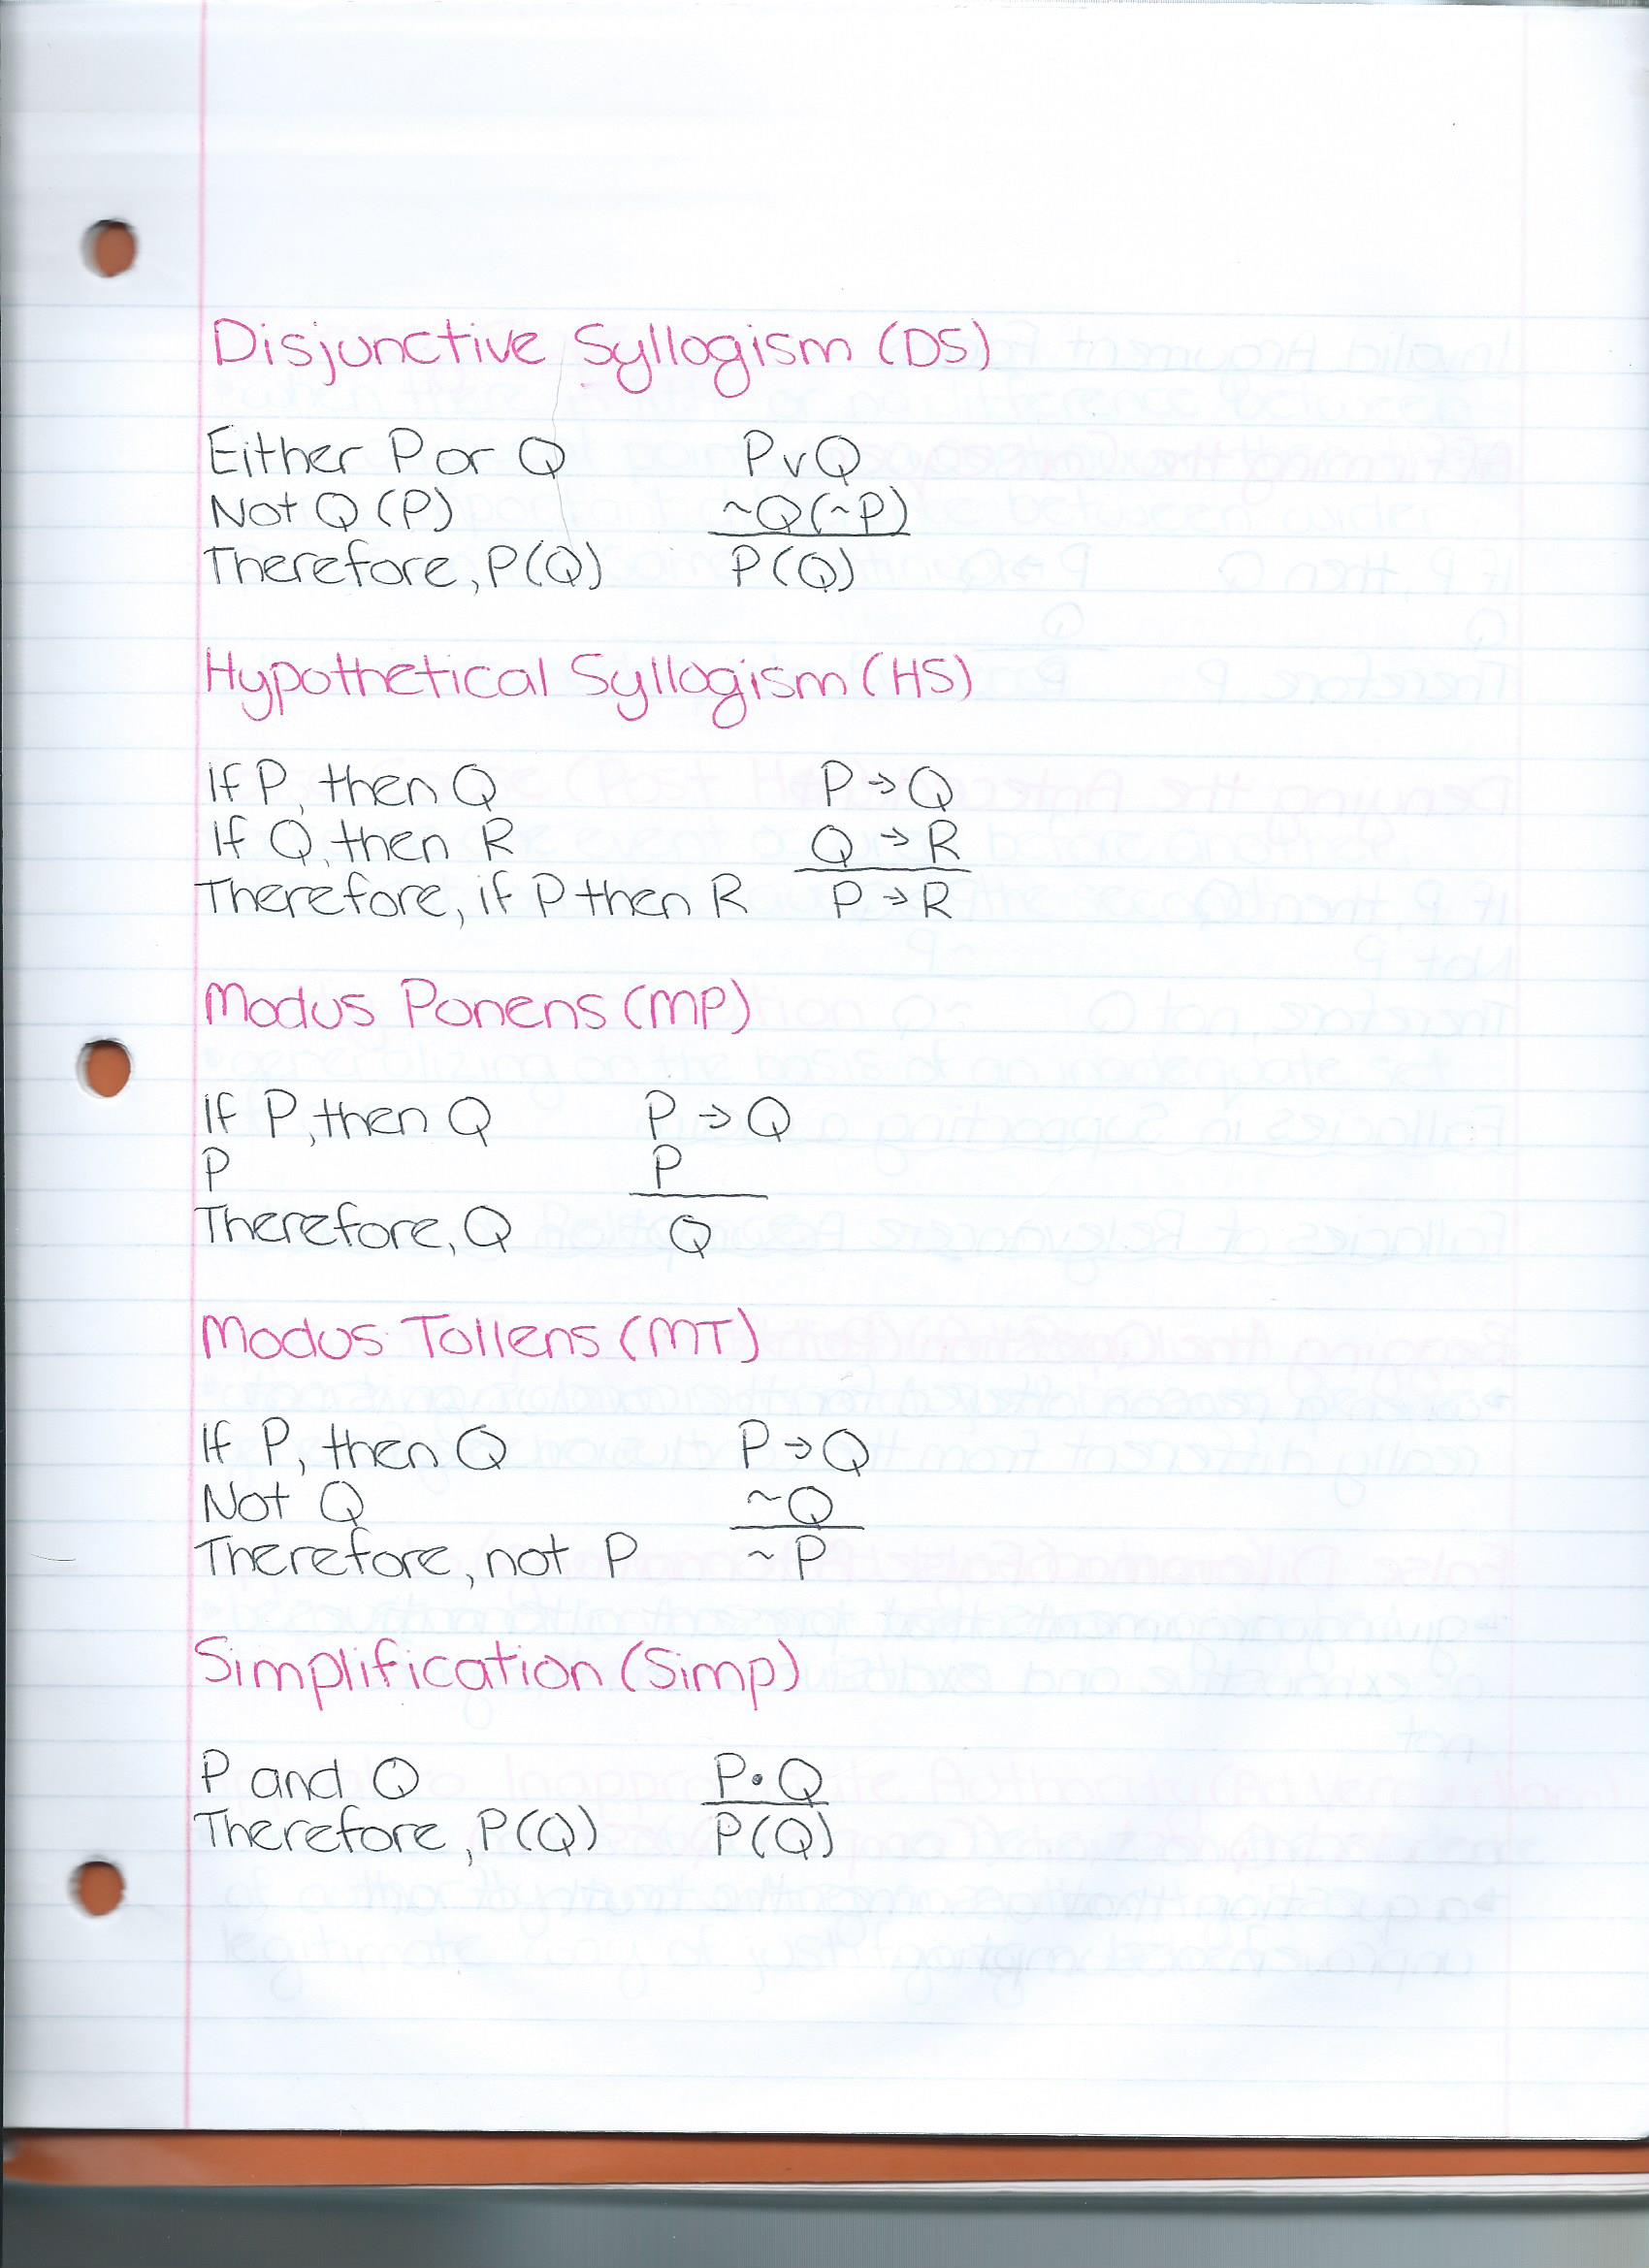 Disjunctive Syllogism (DS)
Either P or Q P v Q
Not Q (P) ~Q(~P)
Therefore, P(Q) P(Q)
Hypothetical Syllogism (HS)
If P, then Q P → Q
If Q, then R Q → R
Therefore, if P then R P → R
Modus Ponens (MP)
If P, then Q P → Q
P P
Therefore, Q Q
Modus Tollens (MT)
If P, then Q P → Q
Not Q ~Q
Therefore, not P ~P
Simplification (Simp)
P and Q P • Q
Therefore, P(Q) P(Q)